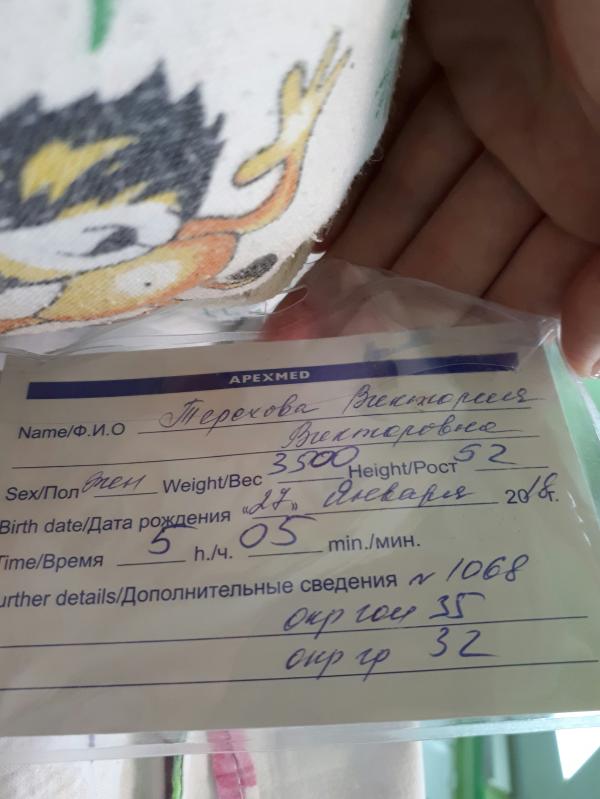 APEXMED
Name/Ф.И.О Терехова Виктория
Викторовна
Sex/Пол жен Weight/Вес 3500 Height/Рост 52
Birth date/Дата рождения «27» Января 2018г.
Time/Время 5 h./ч. 05 min./мин.
urther details/Дополнительные сведения N 1068
окр гол 35
окр гр 32